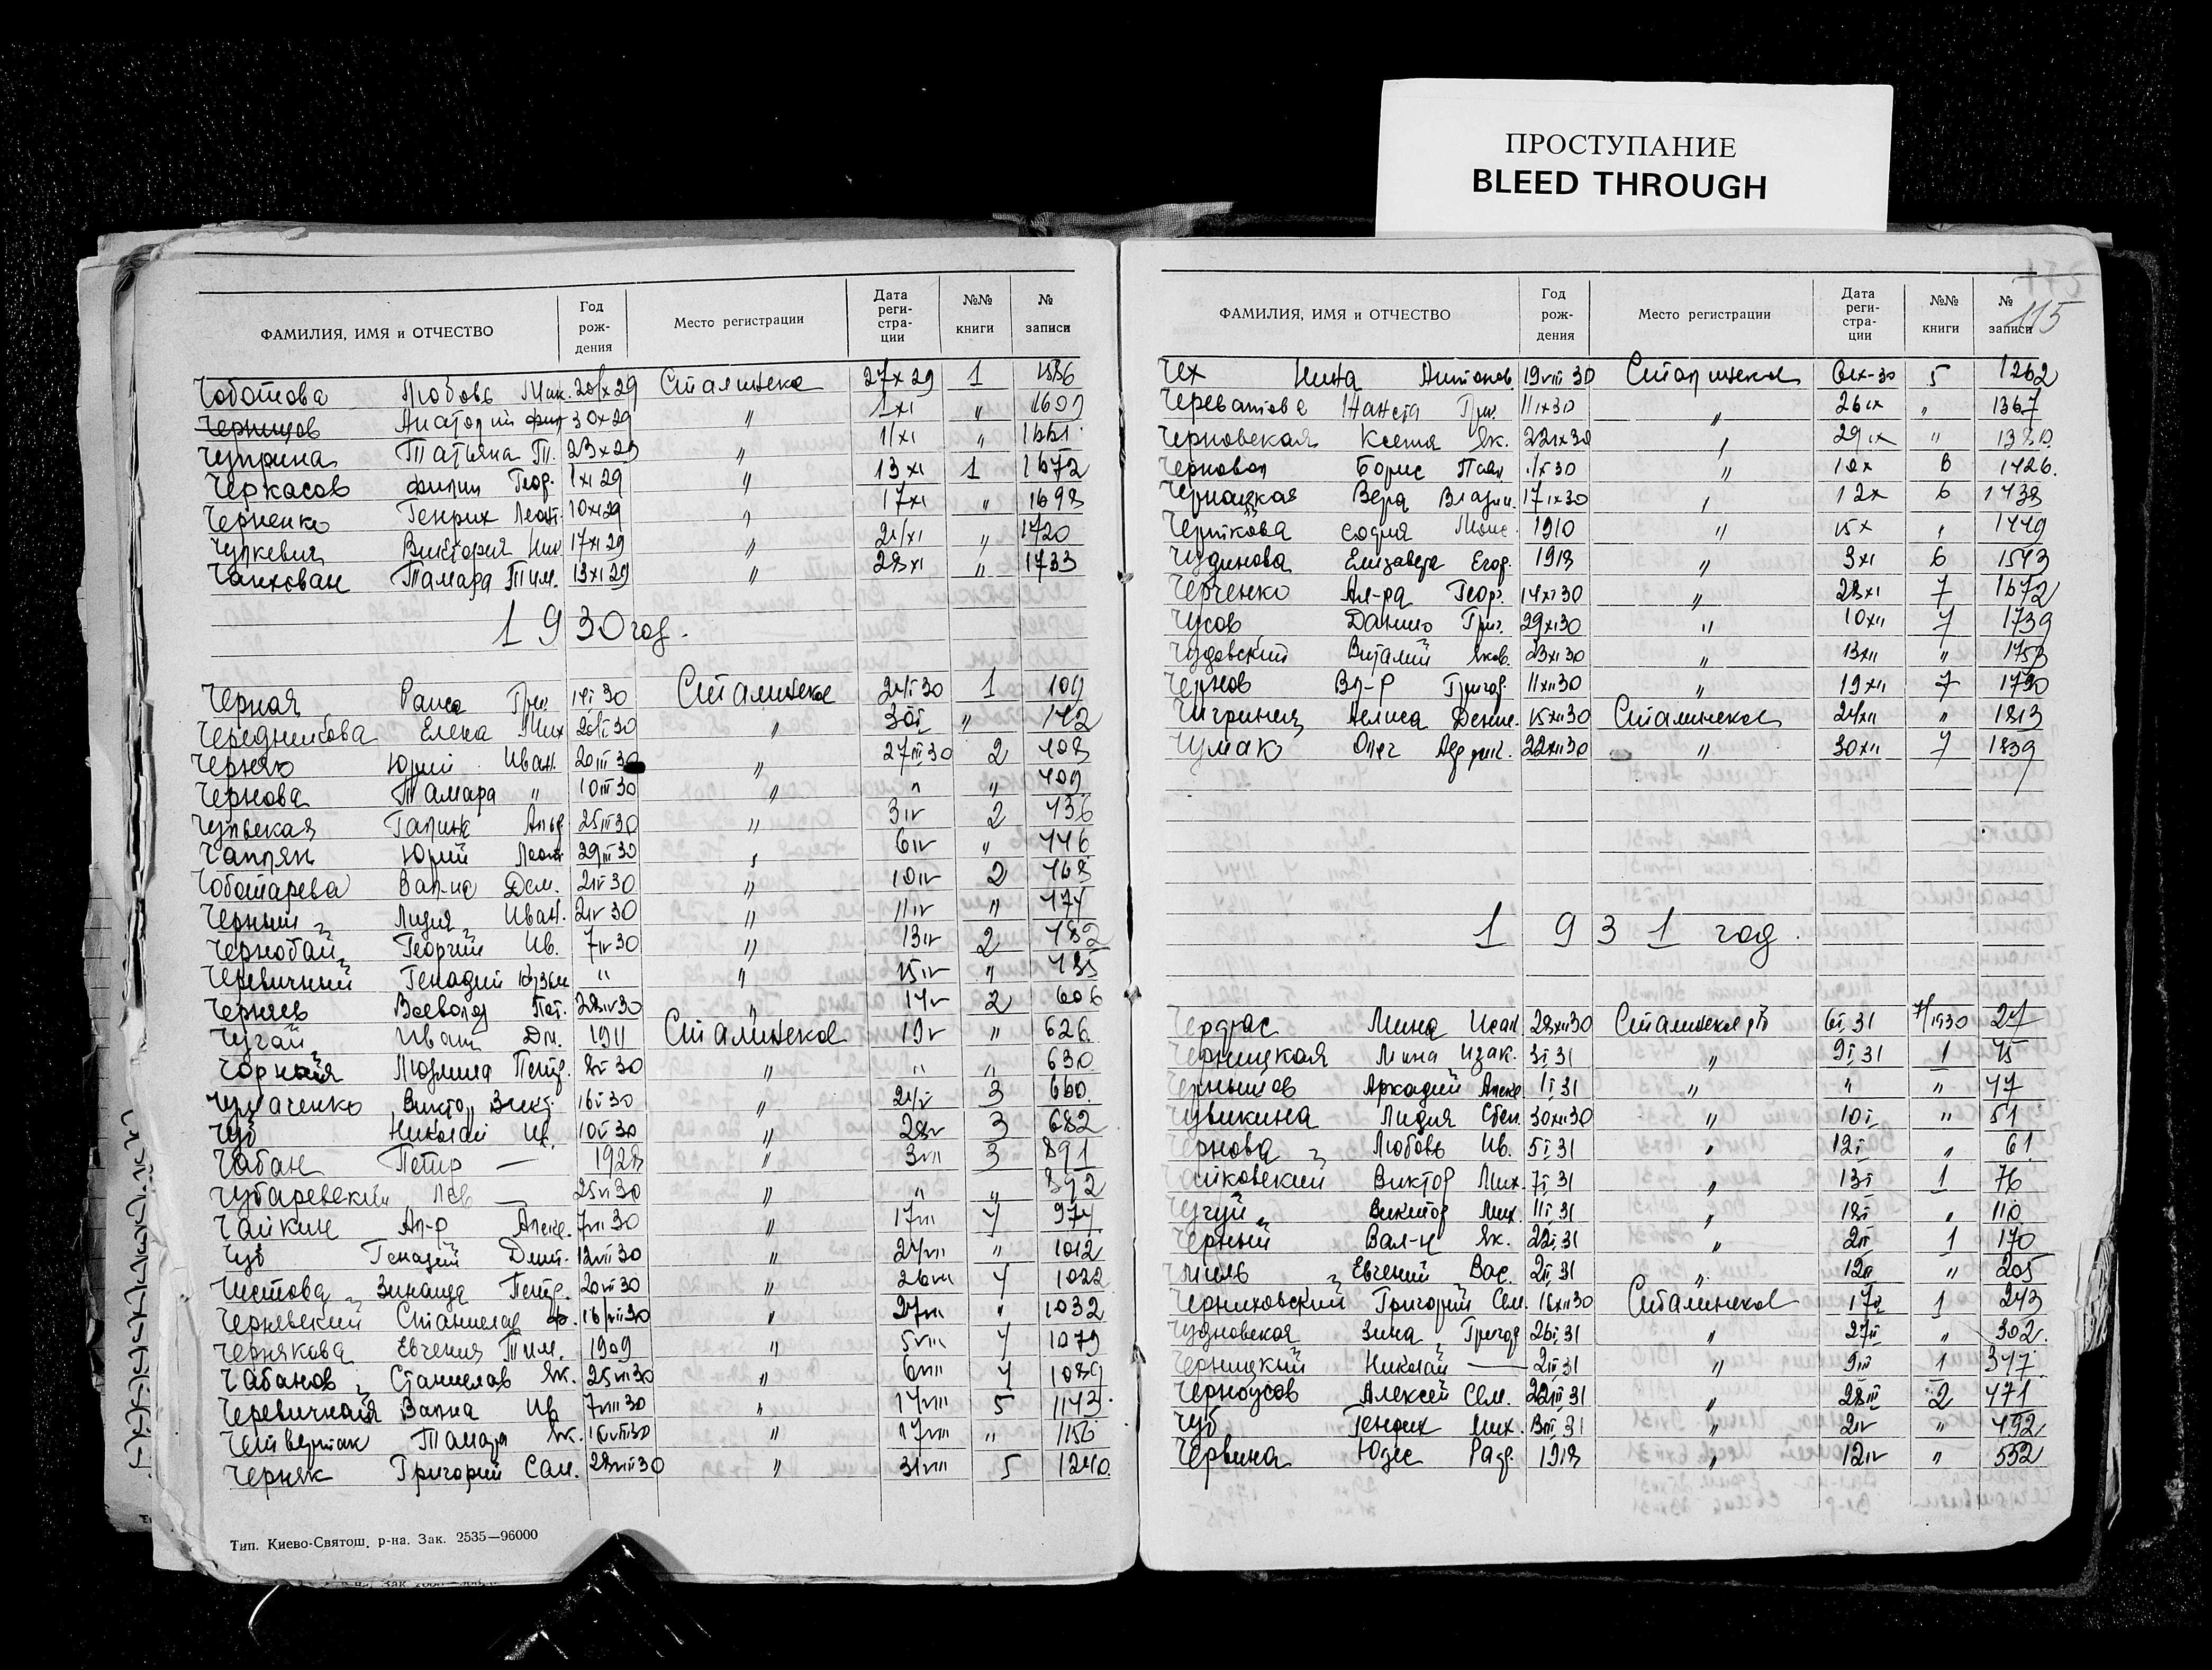 ПРОСТУПАНИЕ
BLEED THROUGH
115
ФАМИЛИЯ, ИМЯ и ОТЧЕСТВО Год рождения Место регистрации Дата регистрации №№ книги № записи
Чоботова Любовь Мик. 20/x 29 Сталинское 27x 29 1 1586
Чернцов Анатолий 30x29 " 1xi " 1609
Чуприна Татьяна Т. 23x29 " 11/xi " 1661
Черкасов Филип Геор. 1xi29 " 13xi 1 1672
Черненко Генрих Леонт. 10xi29 " 17xi " 1698
Чупкевич Виктория Ник 17xi29 " 21/xi " 1720
Чанхован Тамара Тим. 13xi29 " 28xi " 1733
1930 год.
Черная Раиса Григ 14i30 Сталинское 24/i 30 1 109
Чередникова Елена Мих 20/i30 " 30i " 142
Черняк Юрий Иван. 20iii30 " 27iii30 2 408
Чернова Тамара " 10iii30 " " " 409
Чульская Галина 25iii30 " 3iv 2 436
Чаплян Юрий Леонт 29iii30 " 6iv " 446
Чоботарева Вал-на Дем. 2iv30 " 10iv 2 468
Черный Лидия Иван. 2iv30 " 11iv " 474
Чернобай Георгий Ив. 7iv30 " 13iv 2 482
Черевичный Генадий Кузьм " " 15iv " 485
Черняев Всеволод Пет. 28iv30 " 14v 2 606
Чугай Иван Дм. 1911 Сталинское 19v " 626
Чорная Людмила Петр. 8v30 " " " 630
Чумаченко Виктор Викт. 16v30 " 24/v 3 660
Чуб Николай Ив. 10v30 " 28v 3 682
Чабан Петр — 1928 " 3vii 3 891
Чубаревский Лев — 25vi30 " " " 892
Чайкин Ал-р Алекс. 7vii30 " 17vii 4 974
Чуб Генадий Дмит. 12vii30 " 24vii " 1012
Чистова Зинаида Петр. 20vii30 " 26vii 4 1022
Чернявский Станислав Ф. 16/vii30 " 27vii " 1032
Чернякова Евгения Тим. 1909 " 5viii 4 1079
Чабанов Станислав Як. 25vii30 " 6viii 4 1089
Черевичная Ив 7viii30 " 14viii 5 1143
Четвертак Тамара Як. " 17viii " 1156
Черняк Григорий Сам. 28viii30 " 31viii 5 1240
Тип. Киево-Святош. р-на. Зак. 2535—96000
ФАМИЛИЯ, ИМЯ и ОТЧЕСТВО Год рождения Место регистрации Дата регистрации №№ книги № записи
Чех Нина Антонов. 19viii30 Сталинское 5 1262
Череватова Жанета Григ. 11ix30 " 26ix " 1367
Черновская Ксения Як. 22ix30 " 29ix " 1380
Черновол Борис Павл 30 " 10x 6 1426.
Черноцкая Вера Владим. 17ix30 " 12x 6 1438
Черткова София Моис. 1910 " 15x " 1449
Чудинова Елизавета Егор. 1918 " 3xi 6 1543
Черченко Ал-ра Георг. 14xi30 " 28xi 7 1672
Чусов Данило Григ. 29xi30 " 10xii 7 1739
Чудовский Виталий Яков. 23xi30 " 13xii " 1753
Чернов Вл-р Григор. 11xii30 " 19xii 7 1790
Чигринец Алиса Дение. 15xii30 Сталинское 24xii " 1813
Чумак Олег Андрик. 22xii30 " 30xii 7 1839
1931 год.
Чердрас Мина Исак. 28xii30 Сталинское 6i,31 7/1930 27
Черницкая Мина Изак. 3i,31 " 9i,31 1 45
Чернышов Аркадий Алекс 1i,31 " " " 47
Чувикина Лидия Степ. 30xii30 " 10i " 51
Чернова Любовь Ив. 5i,31 " 12i " 61
Чайковский Виктор Мих. 7i,31 " 13i 1 76
Чугуй Виктор Мих. 11i,31 " 18i " 110
Черный Вал-н Як. 22i,31 " 2ii 1 170
Евгений Вас. 2ii,31 " 12ii " 205
Черниховский Григорий Сем. 16xii30 Сталинское 17ii 1 243
Чудновская Зина Григор 26i,31 " 27ii " 302
Черницкий Николай — 2iii,31 " 9iii 1 347
Черноусов Алексей Сем. 22iii31 " 28iii 2 471
Чуб Генрих Мих. 13iii,31 " 2iv " 492
Червина Юзес 1918 " 12iv " 552